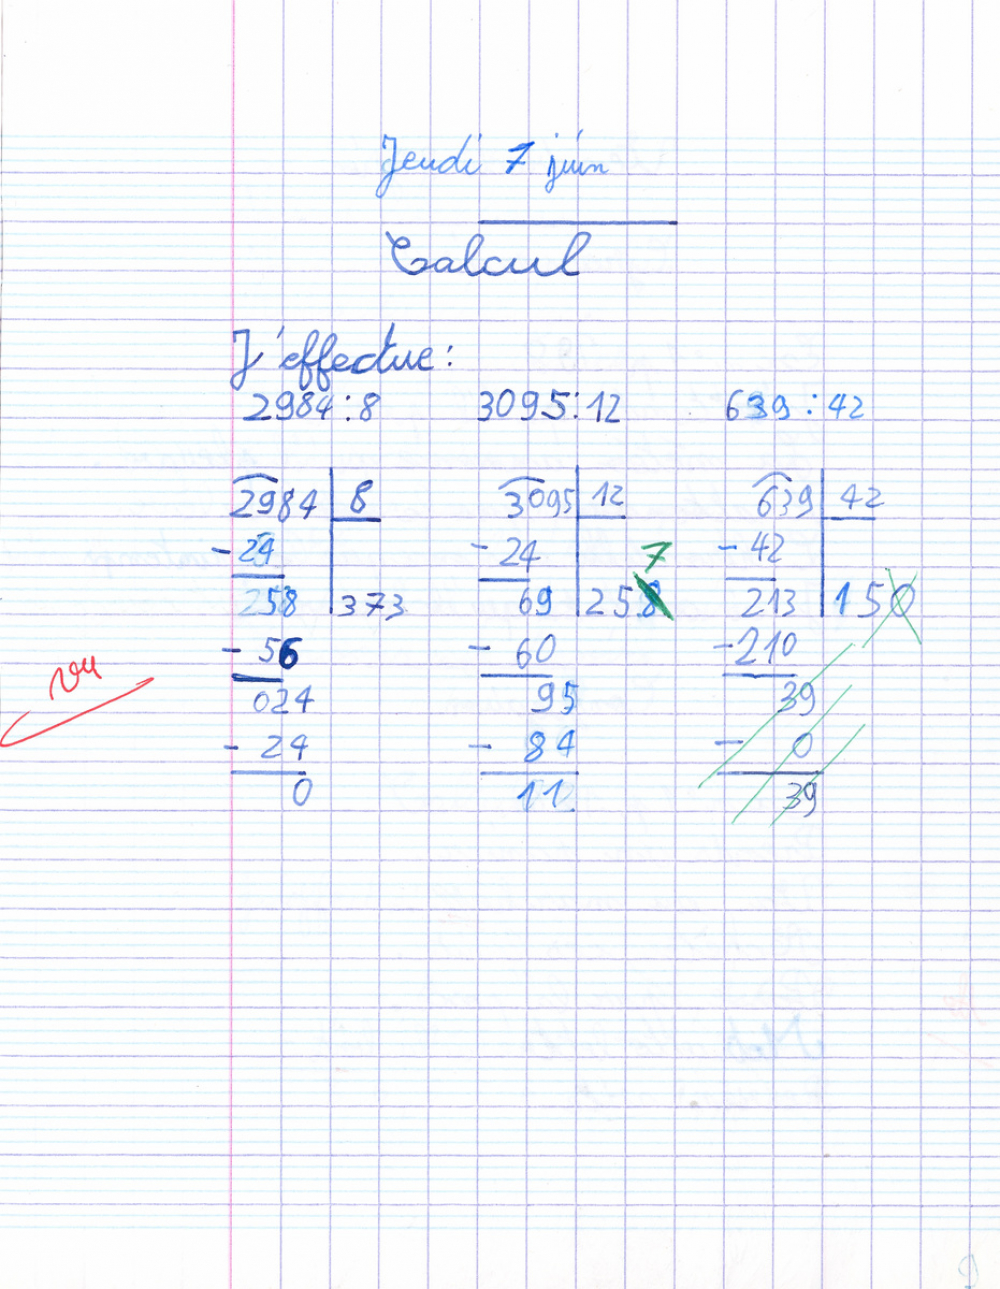 Jeudi 7 juin
Calcul
J'effectue :
2984 : 8 3095 : 12 639 : 42
2984 8 3095 12 639 42
- 24 - 24 7 - 42
258 373 69 258 213 150
- 56 - 60 - 210
024 95 39
- 24 - 84 - 0
0 11 39
vu